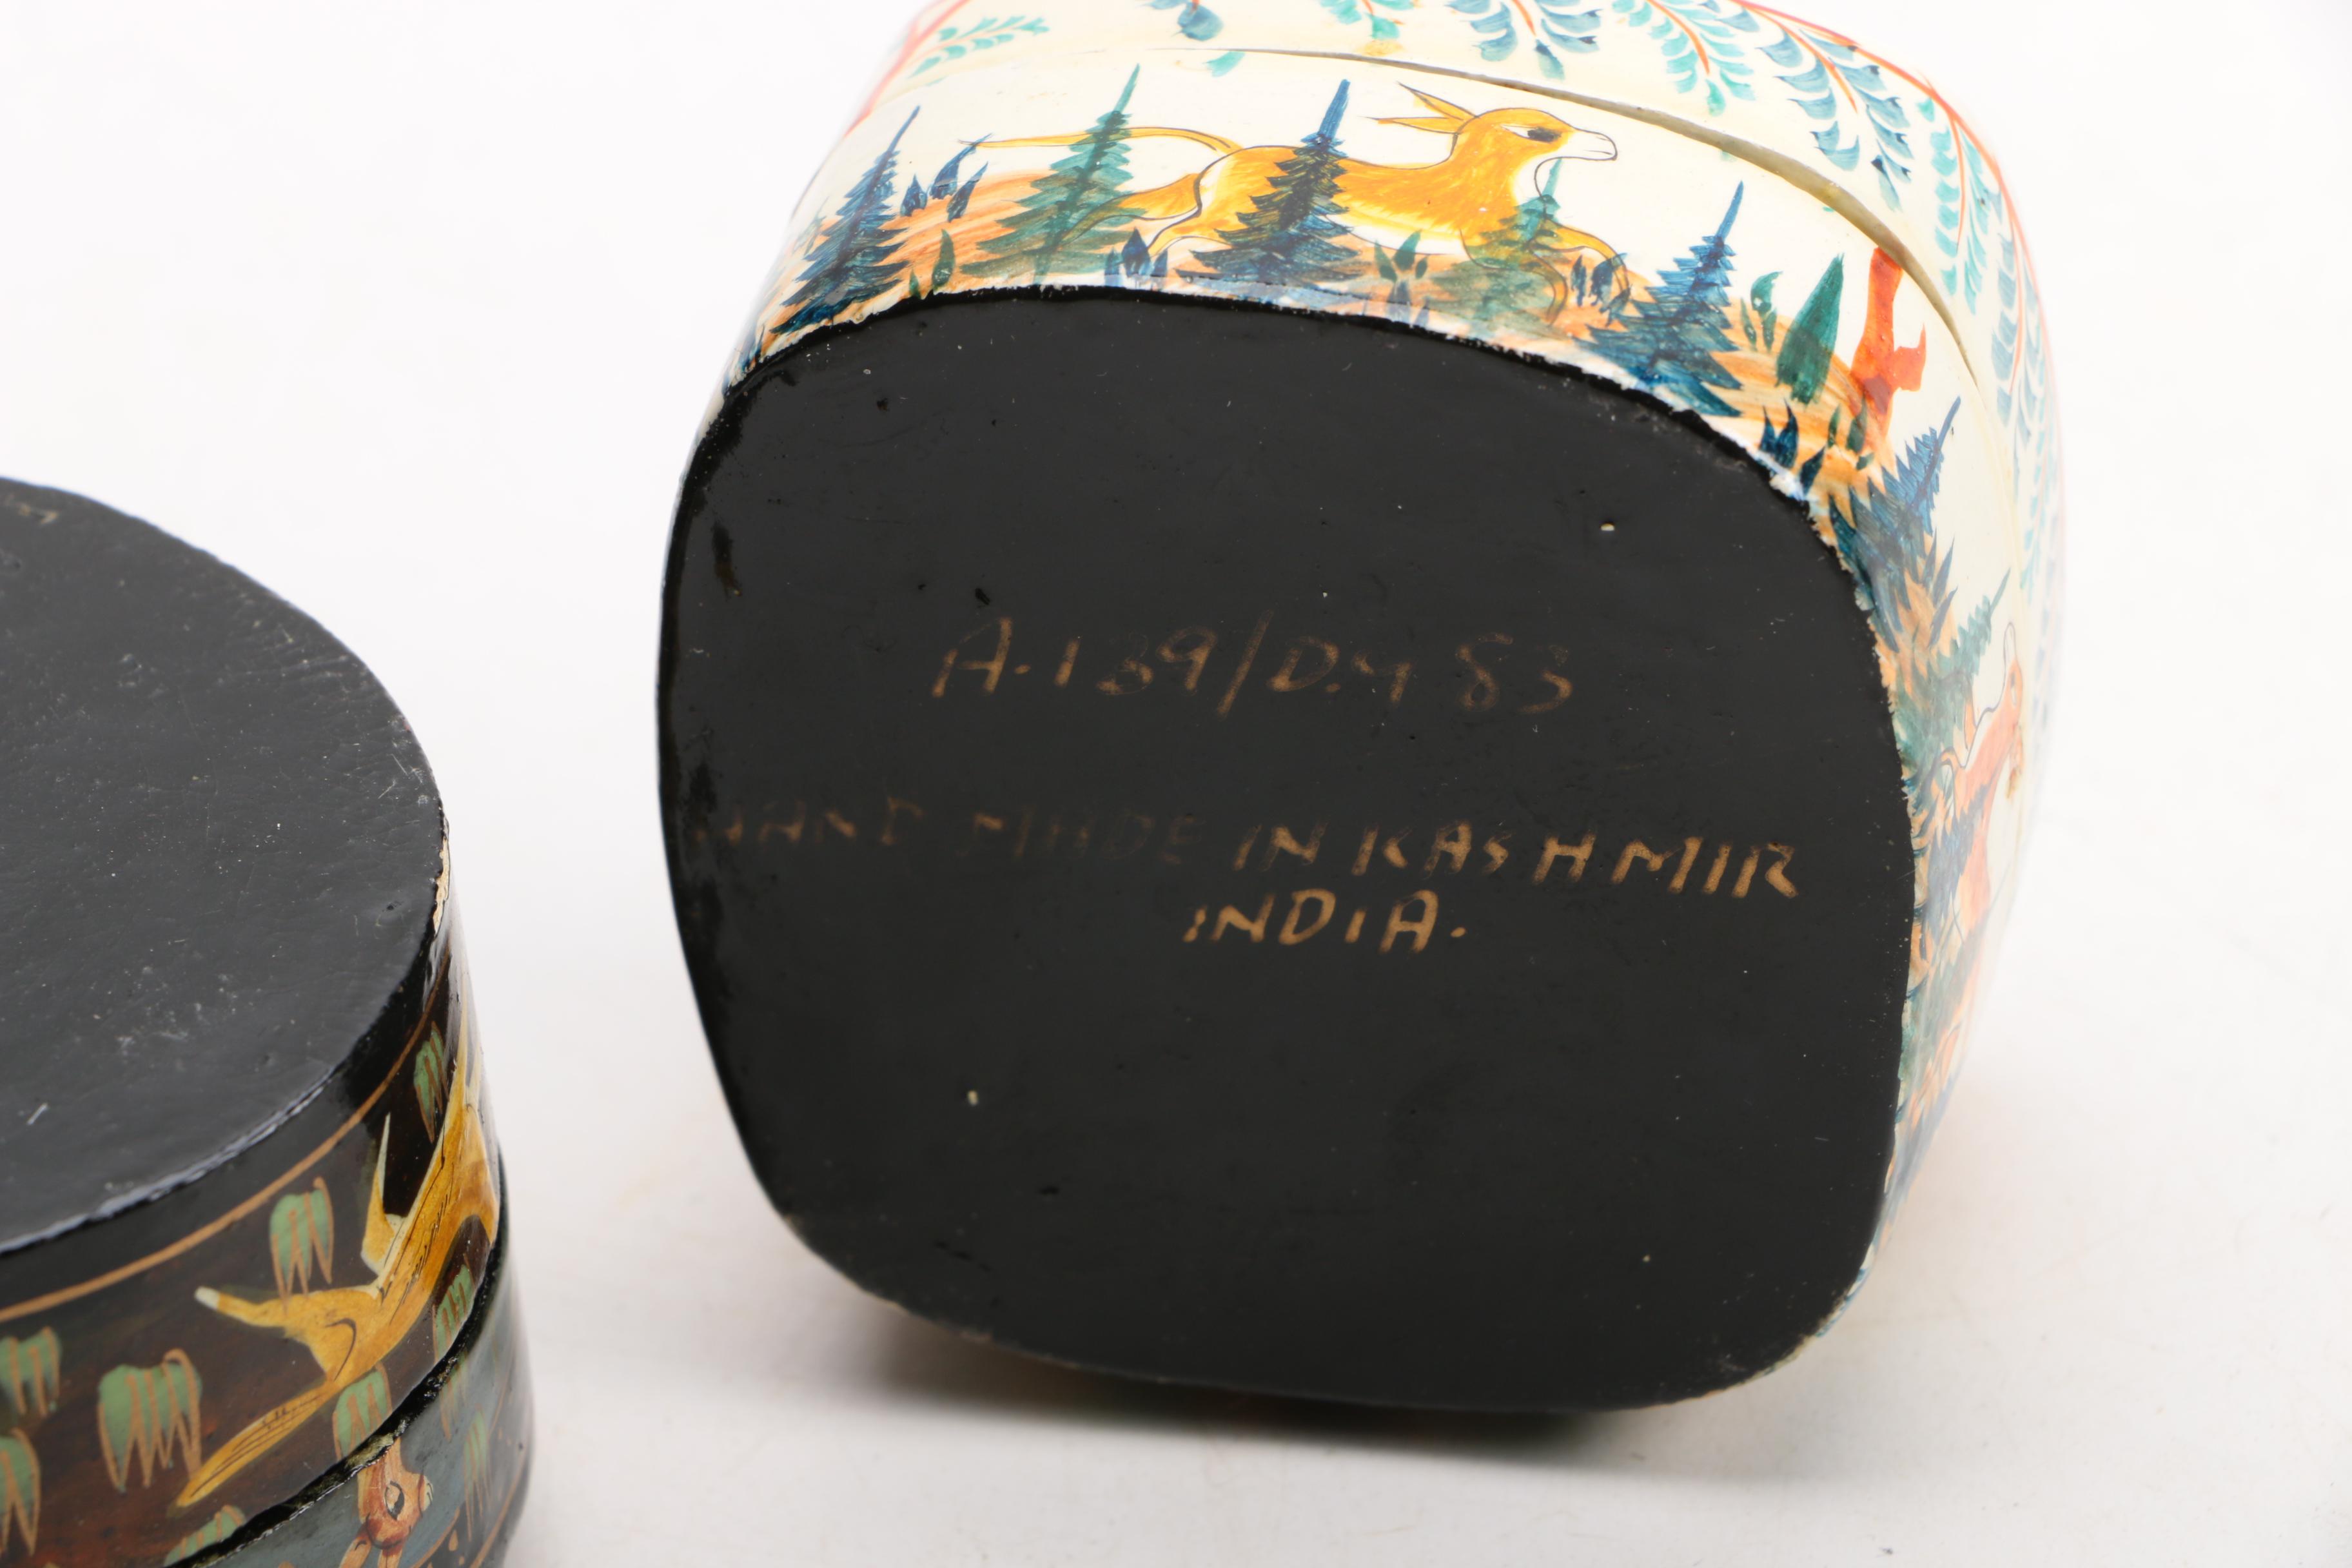 A.139/D.Y 83
HAND MADE IN KASHMIR
INDIA.